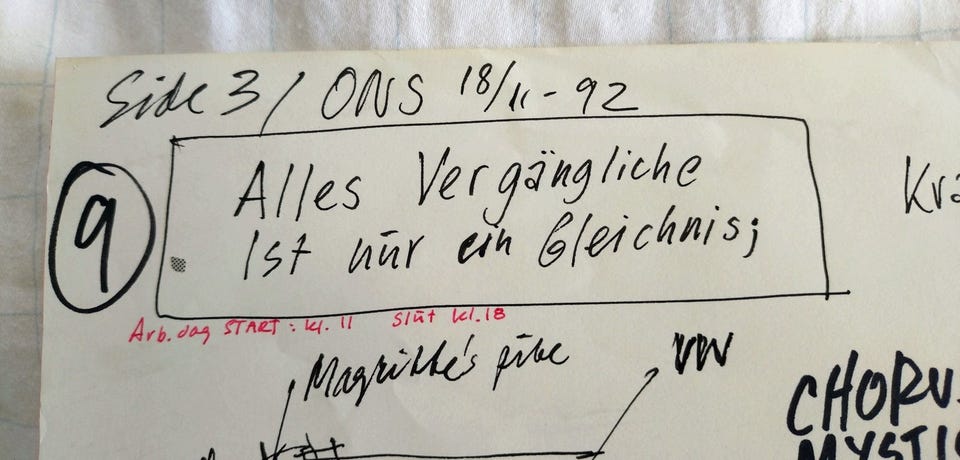 Side 3 / ONS 18/11-92
9
Alles Vergängliche
Ist nur ein Gleichnis;
Arb.dag START: kl. 11 Slut kl. 18
Magritte's pibe
VW
Krä
CHORUS
MYSTIC